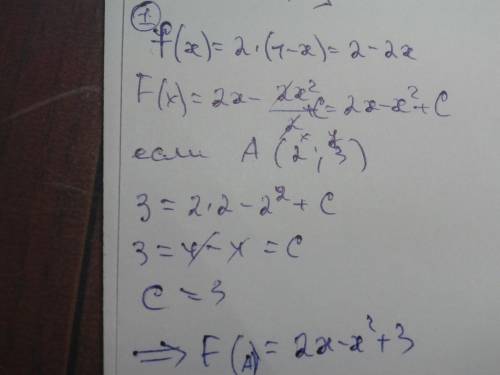 1
f(x) = 2·(1-x) = 2 - 2x
F(x) = 2x - 2x²/2 + C = 2x - x² + C
если A (2 ; 3)
x y
3 = 2·2 - 2² + C
3 = 4 - 4 = C
C = 3
⇒ F(A) = 2x - x² + 3